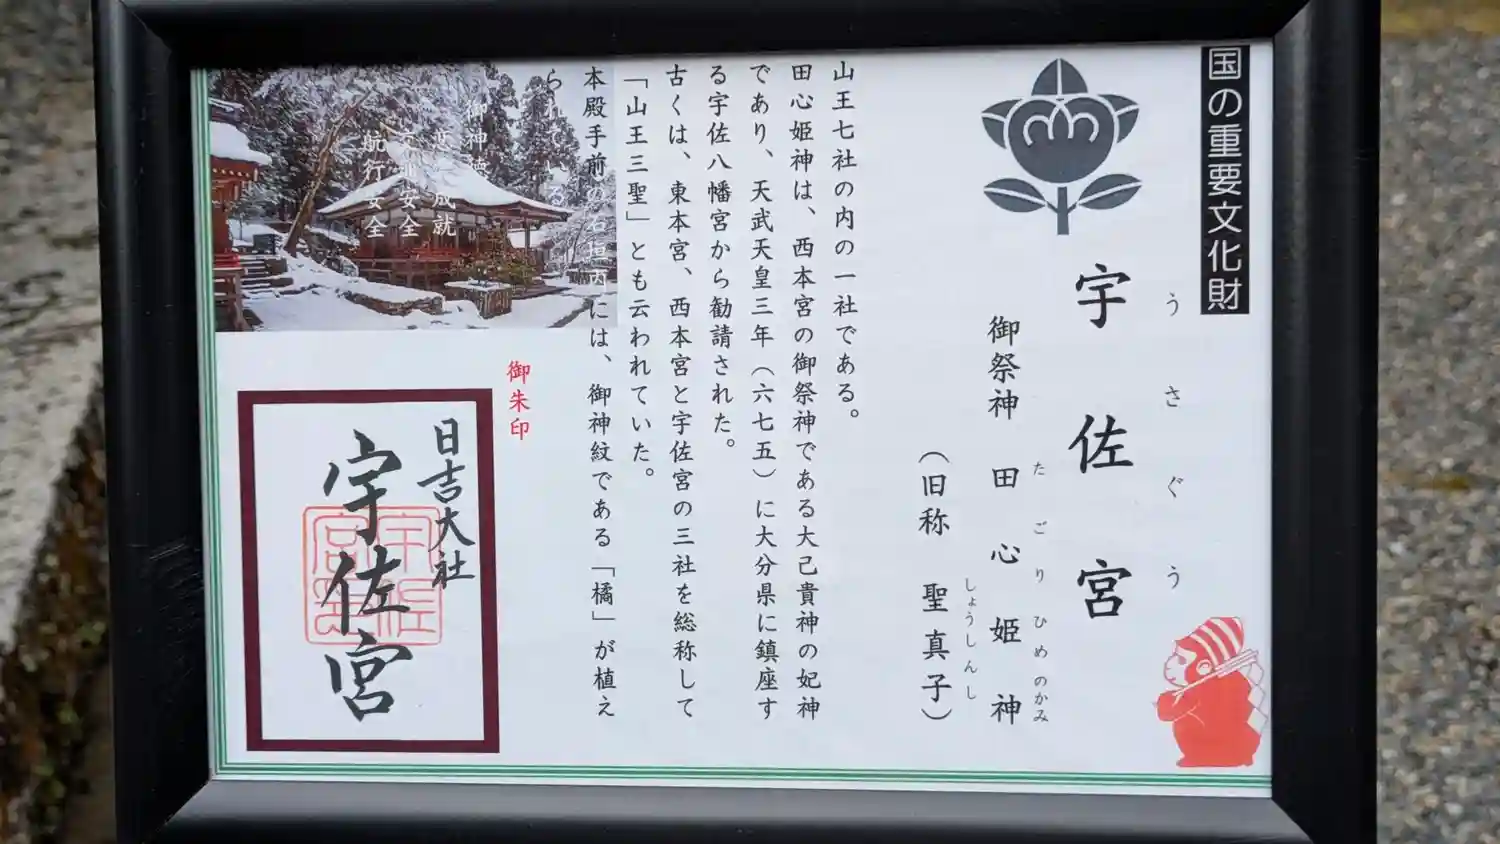 国の重要文化財
うさぐう
宇佐宮
たごりひめのかみ
御祭神 田心姫神
しょうしんし
（旧称 聖真子）
山王七社の内の一社である。
田心姫神は、西本宮の御祭神である大己貴神の妃神
であり、天武天皇三年（六七五）に大分県に鎮座す
る宇佐八幡宮から勧請された。
古くは、東本宮、西本宮と宇佐宮の三社を総称して
「山王三聖」とも云われていた。
本殿手前の石垣内には、御神紋である「橘」が植え
られている。
御神徳
成就
安全
航行安全
御朱印
日吉大社
宇佐宮